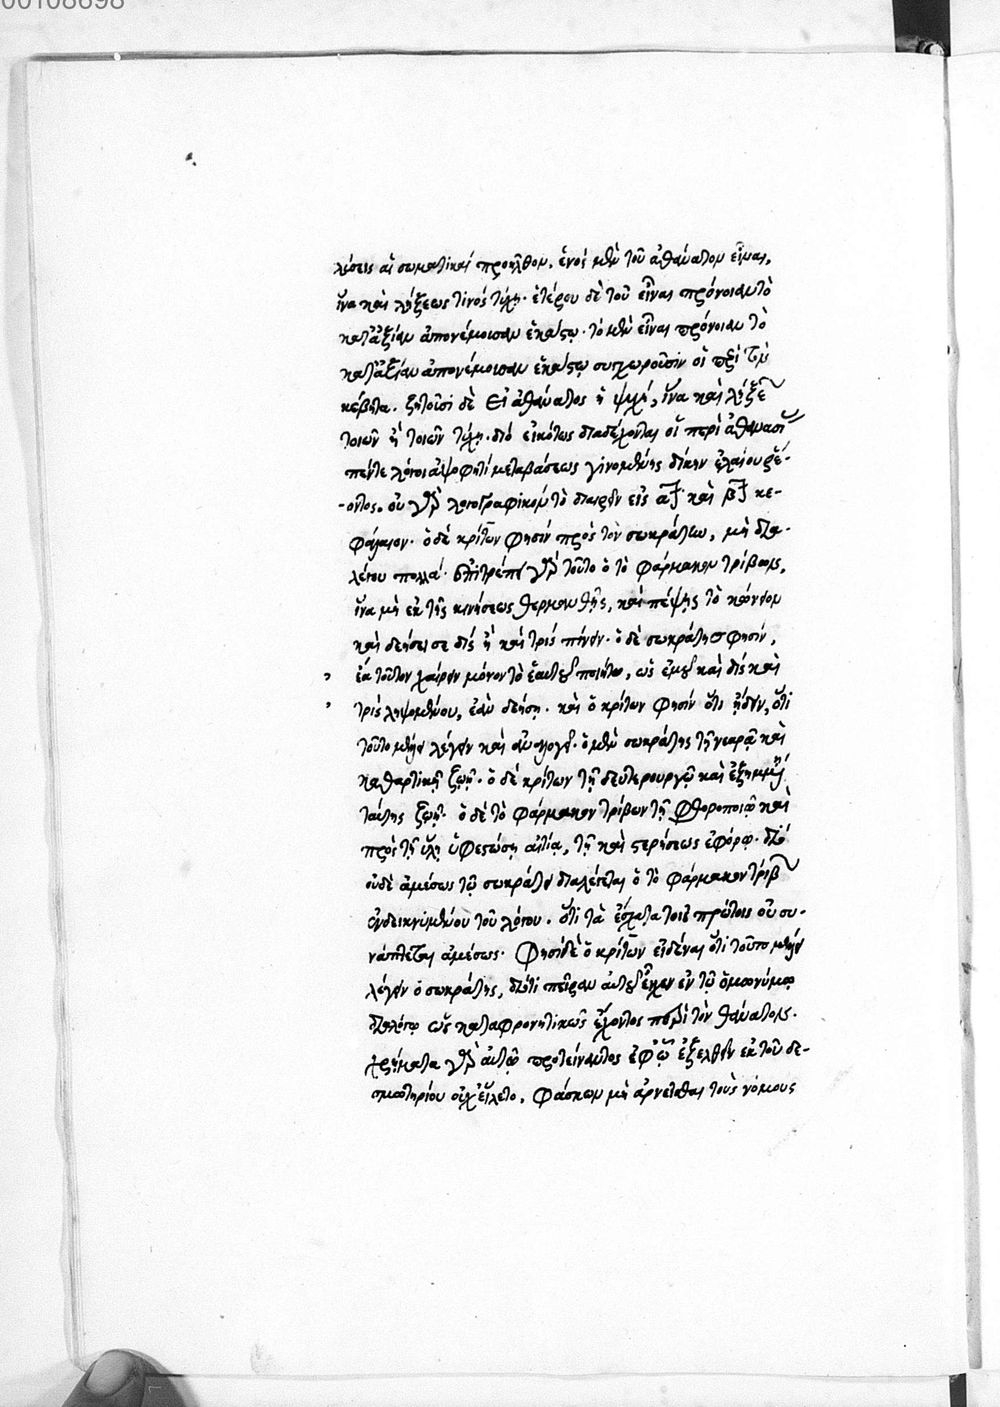 00108698
λύσεις αἱ σωματικαί προῆλθον. ἑνός μὲν τοῦ ἀθάνατον εἶναι,
ἵνα καὶ λήξεως τινός τύχη· ἑτέρου δὲ τοῦ εἶναι πρόνοιαν τὸ
κατἀξίαν ἀπονέμουσαν ἑκάστῳ· τὸ μὲν εἶναι πρόνοιαν τὸ
κατἀξίαν ἀπονέμουσαν ἑκάστῳ συγχωροῦσιν οἱ περὶ τὸν
κέβητα. ζητοῦσι δὲ εἰ ἀθάνατος ἡ ψυχή, ἵνα καὶ λήξεων
τοιῶν ἢ τοιῶν τύχη. διὸ εἰκότως διαδέχονται οἱ περὶ ἀθανασίας
πέντε λόγοι ἀψοφητὶ μεταβάσεως γινομένης δίκην ἐλαίου ῥέ-
-οντος. οὐ γὰρ λογογραφικὸν τὸ διαιρεῖν εἰς αον καὶ βον κε-
φάλαιον. ὁ δὲ κρίτων φησίν πρὸς τὸν σωκράτην, μὴ δια-
λέγου πολλά. ἐπιτρέπει γὰρ τοῦτο ὁ τὸ φάρμακον τρίβων,
ἵνα μὴ ἐκ τῆς κινήσεως θερμανθῇς, καὶ πέψῃς τὸ κώνειον
καὶ δεήσει σε δίς ἢ καὶ τρίς πίνειν. ὁ δὲ σωκράτης φησίν,
ἔα τοῦτον χαίρειν μόνον τὸ ἑαυτοῦ ποιήτω, ὡς ἐμοῦ καὶ δίς καὶ
τρίς ληψομένου, ἐὰν δεήσῃ. καὶ ὁ κρίτων φησίν ὅτι ᾔδειν, ὅτι
τοῦτο μέλλεις λέγειν καὶ ἀναλογεῖ. ὁ μὲν σωκράτης τῇ νεαρᾷ καὶ
καθαρτικῇ ζωῇ. ὁ δὲ κρίτων τῇ δευτερουργῷ καὶ ἐξημμένῃ
ταύτης ζωῇ. ὁ δὲ τὸ φάρμακον τρίβων τῇ φθοροποιῷ καὶ
πρὸς τῇ ὕλῃ ὑφεστώσῃ αἰτίᾳ, τῇ καὶ στερήσεως ἐφόρῳ. διὸ
οὐδὲ ἀμέσως τῷ σωκράτει διαλέγεται ὁ τὸ φάρμακον τρίβων
ἐνδεικνυμένου τοῦ λόγου. ὅτι τὰ ἔσχατα τοῖς πρώτοις οὐ συ-
νάπτεται ἀμέσως. φησὶ δὲ ὁ κρίτων εἰδέναι ὅτι τοῦτο μέλλει
λέγειν ὁ σωκράτης, διότι πεῖραν αὐτοῦ εἶχεν ἐν τῷ ὁμωνύμῳ
διαλόγῳ ὡς καταφρονητικῶς ἔχοντος περὶ τὸν θάνατον.
χρήματα γὰρ αὐτῷ προτείναντος ἐφ' ᾧ ἐξελθεῖν ἐκ τοῦ δε-
σμωτηρίου οὐχ εἵλετο, φάσκων μὴ ἀρνεῖσθαι τοὺς νόμους